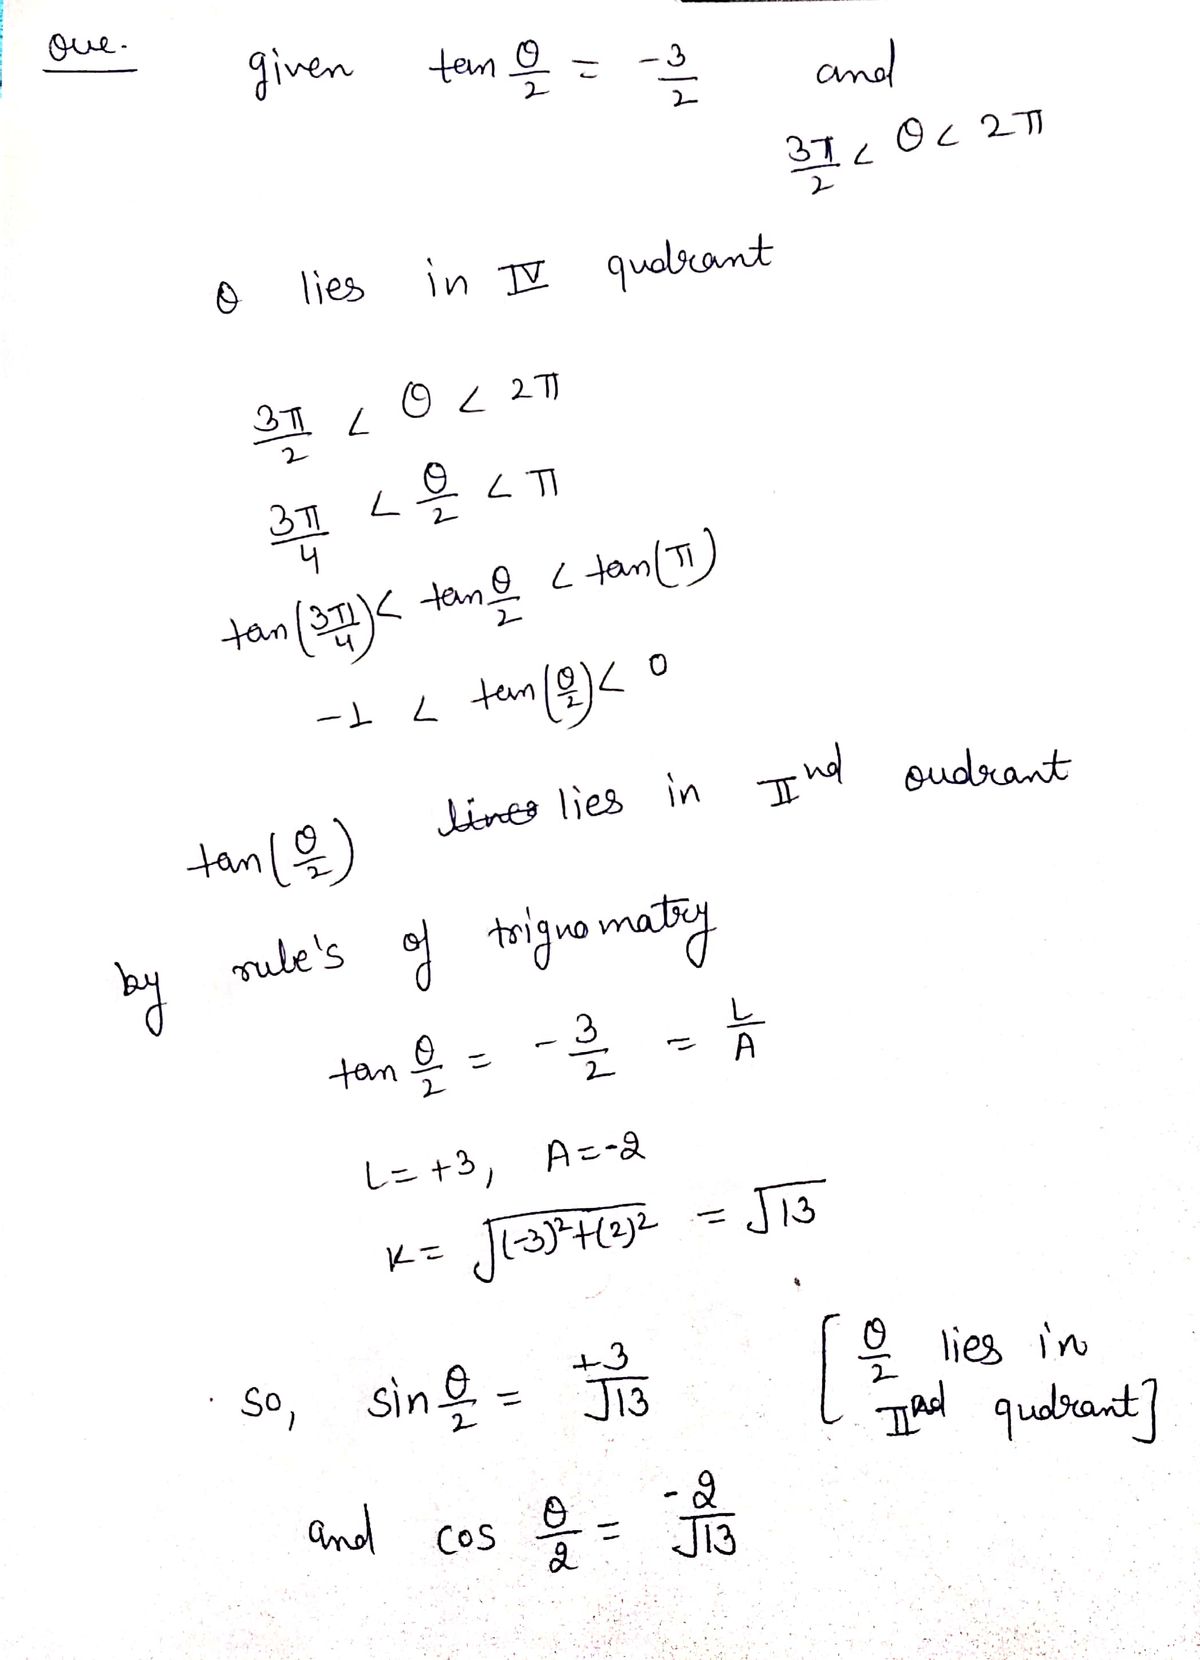 Que. given tan θ/2 = -3/2 and
3π/2 < θ < 2π
θ lies in IV qudrant
3π/2 < θ < 2π
3π/4 < θ/2 < π
tan(3π/4) < tan θ/2 < tan(π)
-1 < tan(θ/2) < 0
tan(θ/2) lines lies in IInd qudrant
by rule's of trignomatry
tan θ/2 = -3/2 = L/A
L = +3, A = -2
K = √(-3)²+(2)² = √13
so, sin θ/2 = +3/√13 [θ/2 lies in
IInd qudrant]
and cos θ/2 = -2/√13